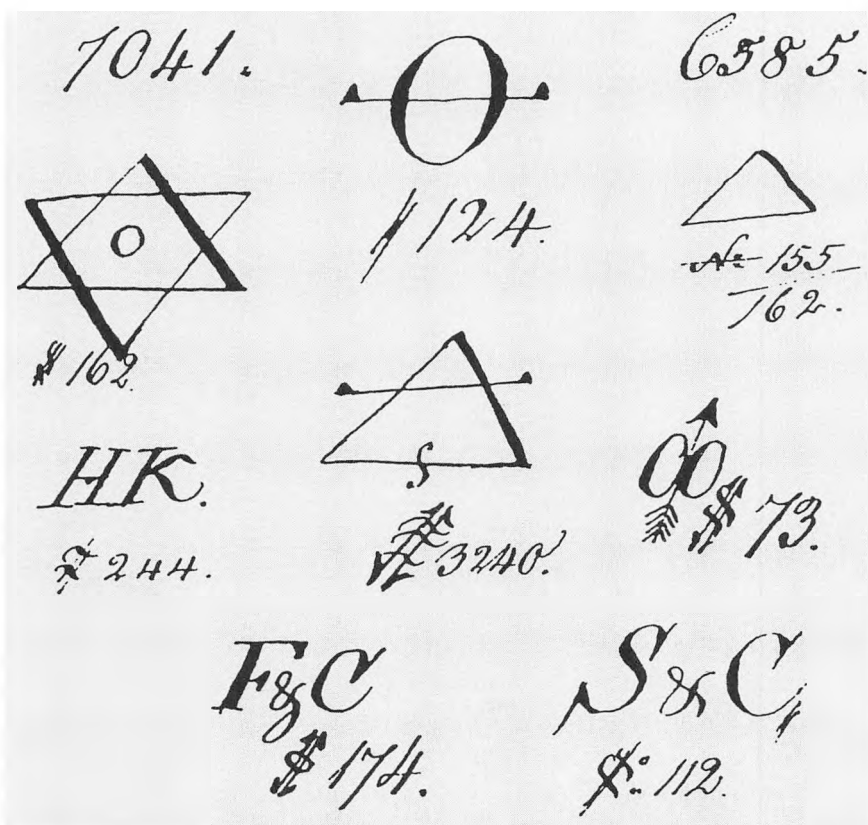 7041.
O
6585.
124.
O
No 155
162.
162
S
HK.
244.
3240.
73.
F&C
174.
S&C
112.